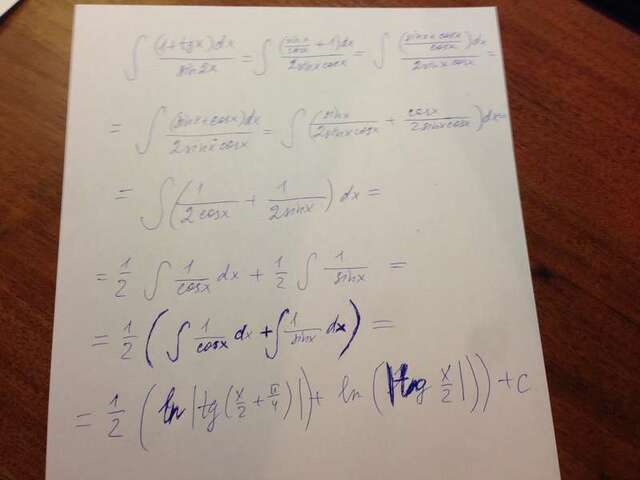 ∫ (1+tgx)dx / sin2x = ∫ (sinx/cosx + 1)dx / 2sinxcosx = ∫ ((sinx+cosx)/cosx)dx / 2sinxcosx =
= ∫ (sinx+cosx)dx / 2sinx cosx = ∫ (sinx / 2sinxcosx + cosx / 2sinxcosx)dx =
= ∫ (1 / 2cosx + 1 / 2sinx) dx =
= 1/2 ∫ 1/cosx dx + 1/2 ∫ 1/sinx =
= 1/2 (∫ 1/cosx dx + ∫ 1/sinx dx) =
= 1/2 (ln |tg(x/2 + π/4)| + ln (|tg x/2|)) + C